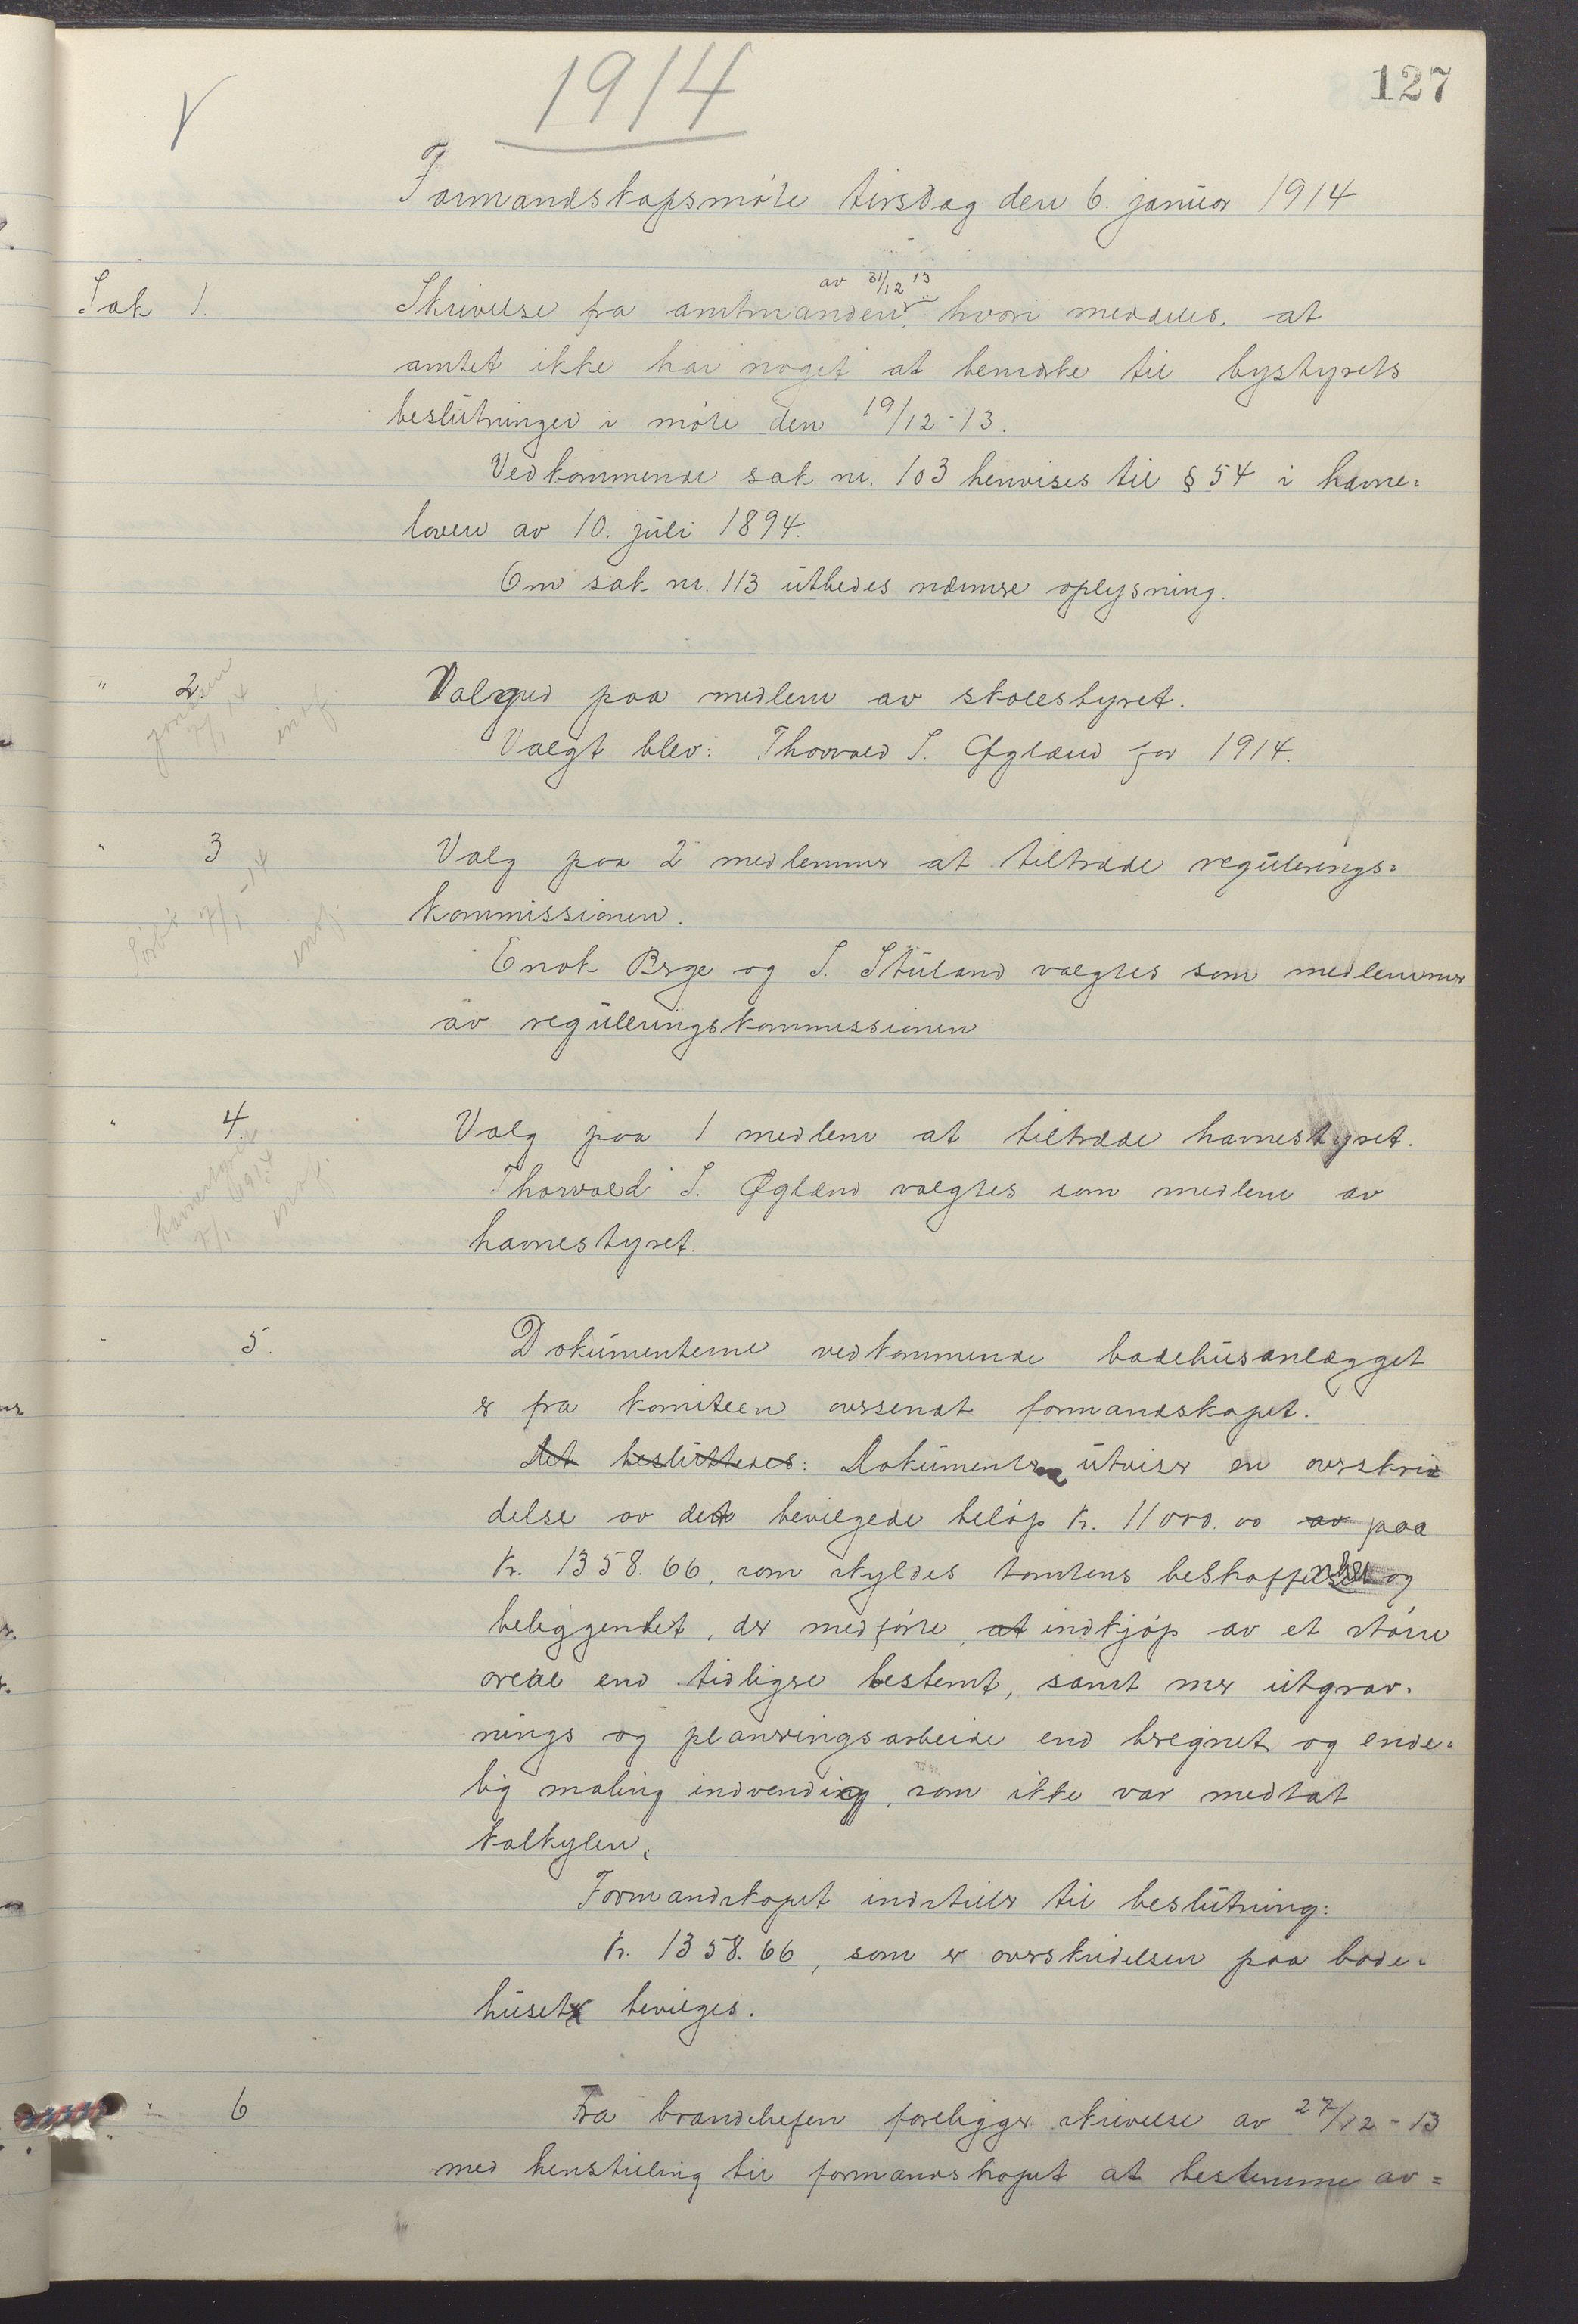 127
1914
Formandskapsmöte tirsdag den 6. januar 1914
av 31/12 13
Sak 1. Skrivelse fra amtmanden, hvori meddeles, at
amtet ikke har noget at bemerke til bystyrets
beslutninger i möte den 19/12-13.
Vedkommende sak nr. 103 henvises til § 54 i havne-
loven av 10. juli 1894.
Om sak nr. 113 utbedes nærmere oplysning.
" 2. Valg paa medlem av skolestyret.
7/1 14 indf.
Valgt blev: Thorvald S. Øglænd for 1914.
" 3 Valg paa 2 medlemmer at tiltræde regulerings-
7/1-14 indf.
kommissionen.
Enok Berge og S. Stuland valgtes som medlemmer
av reguleringskommissionen
" 4. Valg paa 1 medlem at tiltræde havnestyret.
havnestyret 7/1 1914 indf.
Thorvald S. Øglænd valgtes som medlem av
havnestyret.
" 5. Dokumenterne vedkommende badehusanlægget
er fra komiteen oversendt formandskapet.
Det besluttedes: Dokumenterne utviser en overskri
delse av det bevilgede beløp kr. 11000.00 av paa
kr. 1358.66, som skyldes tomtens beskaffenhet og
beliggenhet, der medførte, at indkjøp av et større
areal end tidligere bestemt, samt mer utgrav-
nings og planeringsarbeide end beregnet og ende-
lig maling indvendig, som ikke var medtat
kalkylen.
Formandskapet indstiller til beslutning:
Kr. 1358.66, som er overskridelsen paa bade-
huset bevilges.
" 6 Fra brandchefen foreligger skrivelse av 27/12-13
med henstilling til formandskapet at bestemme av=